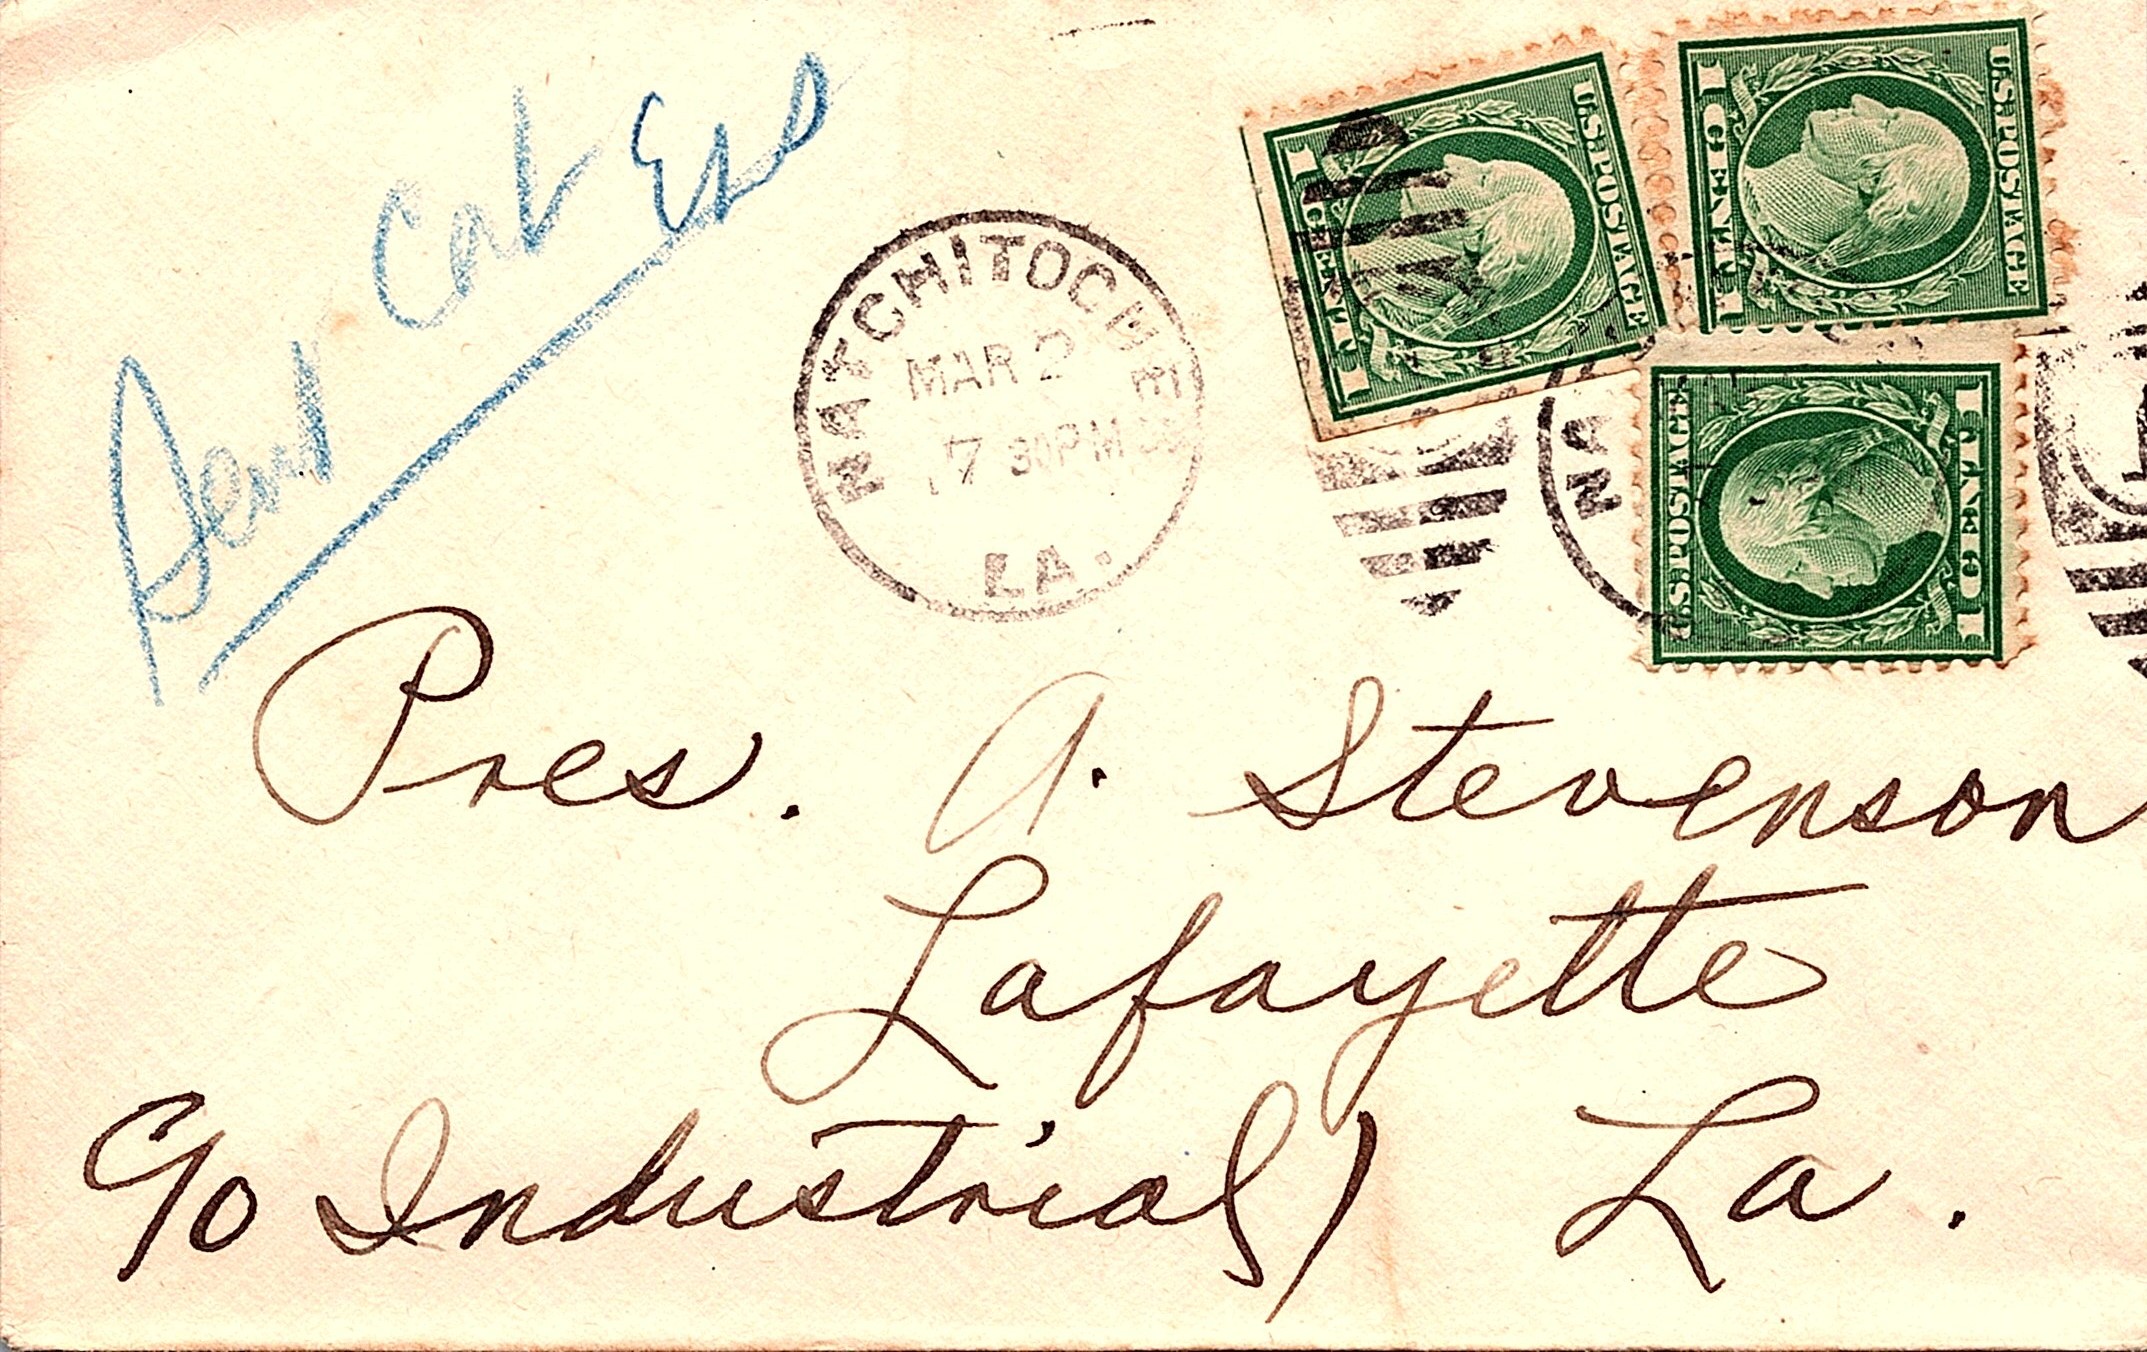 Sent Cat Esd
NATCHITOCHE
MAR 2
7 30PM
LA.
U.S. POSTAGE
1 CENT 1
U.S. POSTAGE
1 CENT 1
NA
U.S. POSTAGE
1 CENT 1
Pres. A. Stevenson
Lafayette
C/o Industrial) La.